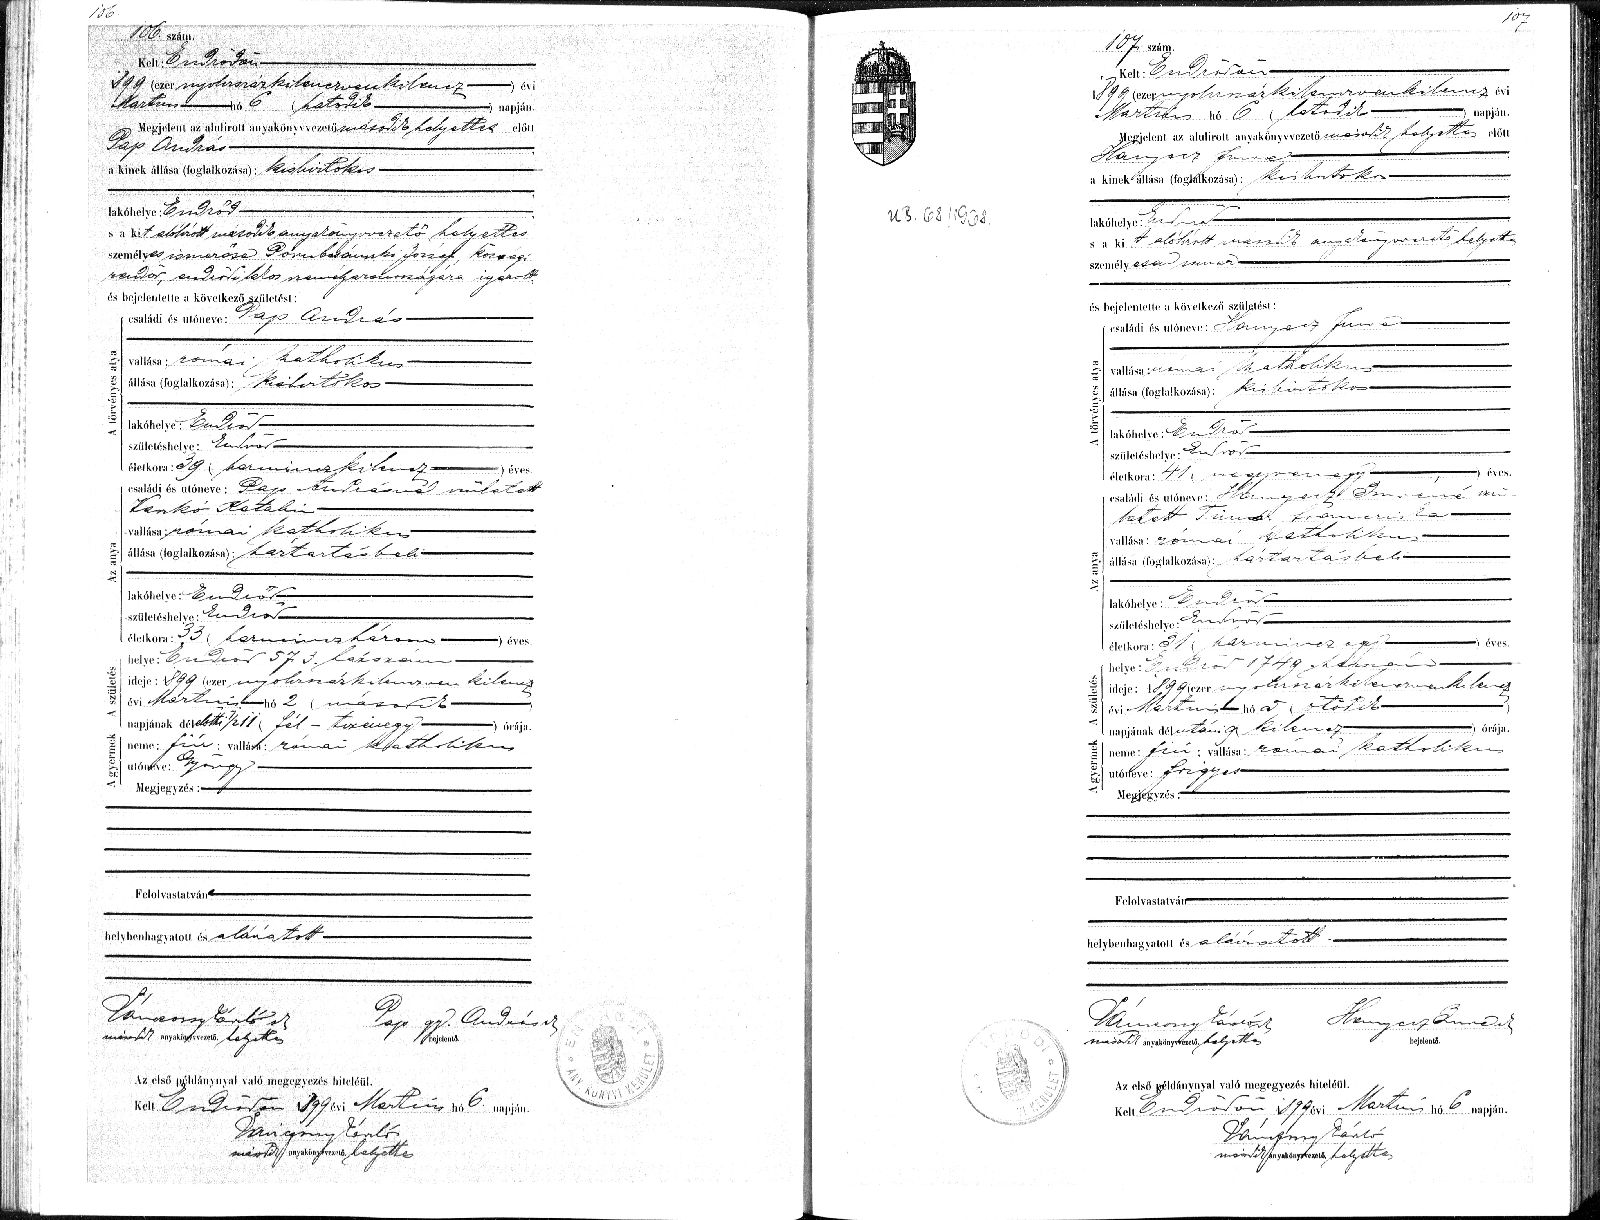 106
106. szám.
Kelt: Endrődön
1899 (ezer nyolcszázkilenczvenkilencz) évi
Martius hó 6 (hatodik) napján.
Megjelent az alulirott anyakönyvvezető második helyettes előtt
Pap András
a kinek állása (foglalkozása): kisbirtokos
lakóhelye: Endrőd
s a kit alólirott második anyakönyvvezető helyettes
személyes ismerőse József, községi
rendőr, endrődi lakos igazolt
és bejelentette a következő születést:
A törvényes atya
családi és utóneve: Pap András
vallása: római katholikus
állása (foglalkozása): kisbirtokos
lakóhelye: Endrőd
születéshelye: Endrőd
életkora: 39 (harminczkilencz) éves.
Az anya
családi és utóneve: Pap Andrásné született
Katalin
vallása: római katholikus
állása (foglalkozása): háztartásbeli
lakóhelye: Endrőd
születéshelye: Endrőd
életkora: 33 (harminczhárom) éves.
A születés
helye: Endrőd 573. házszám
ideje: 1899 (ezer nyolcszázkilenczvenkilencz
évi Martius hó 2 (második)
napjának délelőtti 1/2 11 (fél-tizenegy) órája.
A gyermek
neme: fiú; vallása: római katholikus
utóneve: György
Megjegyzés:
Felolvastatván
helybenhagyatott és aláiratott
második anyakönyvvezető, helyettes
Pap András
bejelentő.
Az első példánynyal való megegyezés hiteléül.
Kelt Endrődön 1899 évi Martius hó 6 napján.
második anyakönyvvezető, helyettes
107
107 szám.
Kelt: Endrődön
1899 (ezer nyolcszázkilenczvenkilencz évi
Martius hó 6 (hatodik) napján.
Megjelent az alulirott anyakönyvvezető második helyettes előtt
Hanyecz Imre
a kinek állása (foglalkozása): kisbirtokos
lakóhelye: Endrőd
s a kit alólirott második anyakönyvvezető helyettes
személyesen ismer
és bejelentette a következő születést:
A törvényes atya
családi és utóneve: Hanyecz Imre
vallása: római katholikus
állása (foglalkozása): kisbirtokos
lakóhelye: Endrőd
születéshelye: Endrőd
életkora: 41 (negyvenegy) éves.
Az anya
családi és utóneve: Hanyecz Imréné szü-
letett
vallása: római katholikus
állása (foglalkozása): háztartásbeli
lakóhelye: Endrőd
születéshelye: Endrőd
életkora: 31 (harminczegy) éves.
A születés
helye: Endrőd 1749 házszám
ideje: 1899 (ezer nyolcszázkilenczvenkilencz
évi Martius hó 5 (ötödik)
napjának délután 9 kilencz) órája.
A gyermek
neme: fiú; vallása: római katholikus
utóneve: Frigyes
Megjegyzés:
Felolvastatván
helybenhagyatott és aláiratott
második anyakönyvvezető, helyettes
Hanyecz Imre
bejelentő.
Az első példánynyal való megegyezés hiteléül.
Kelt Endrődön 1899 évi Martius hó 6 napján.
második anyakönyvvezető, helyettes